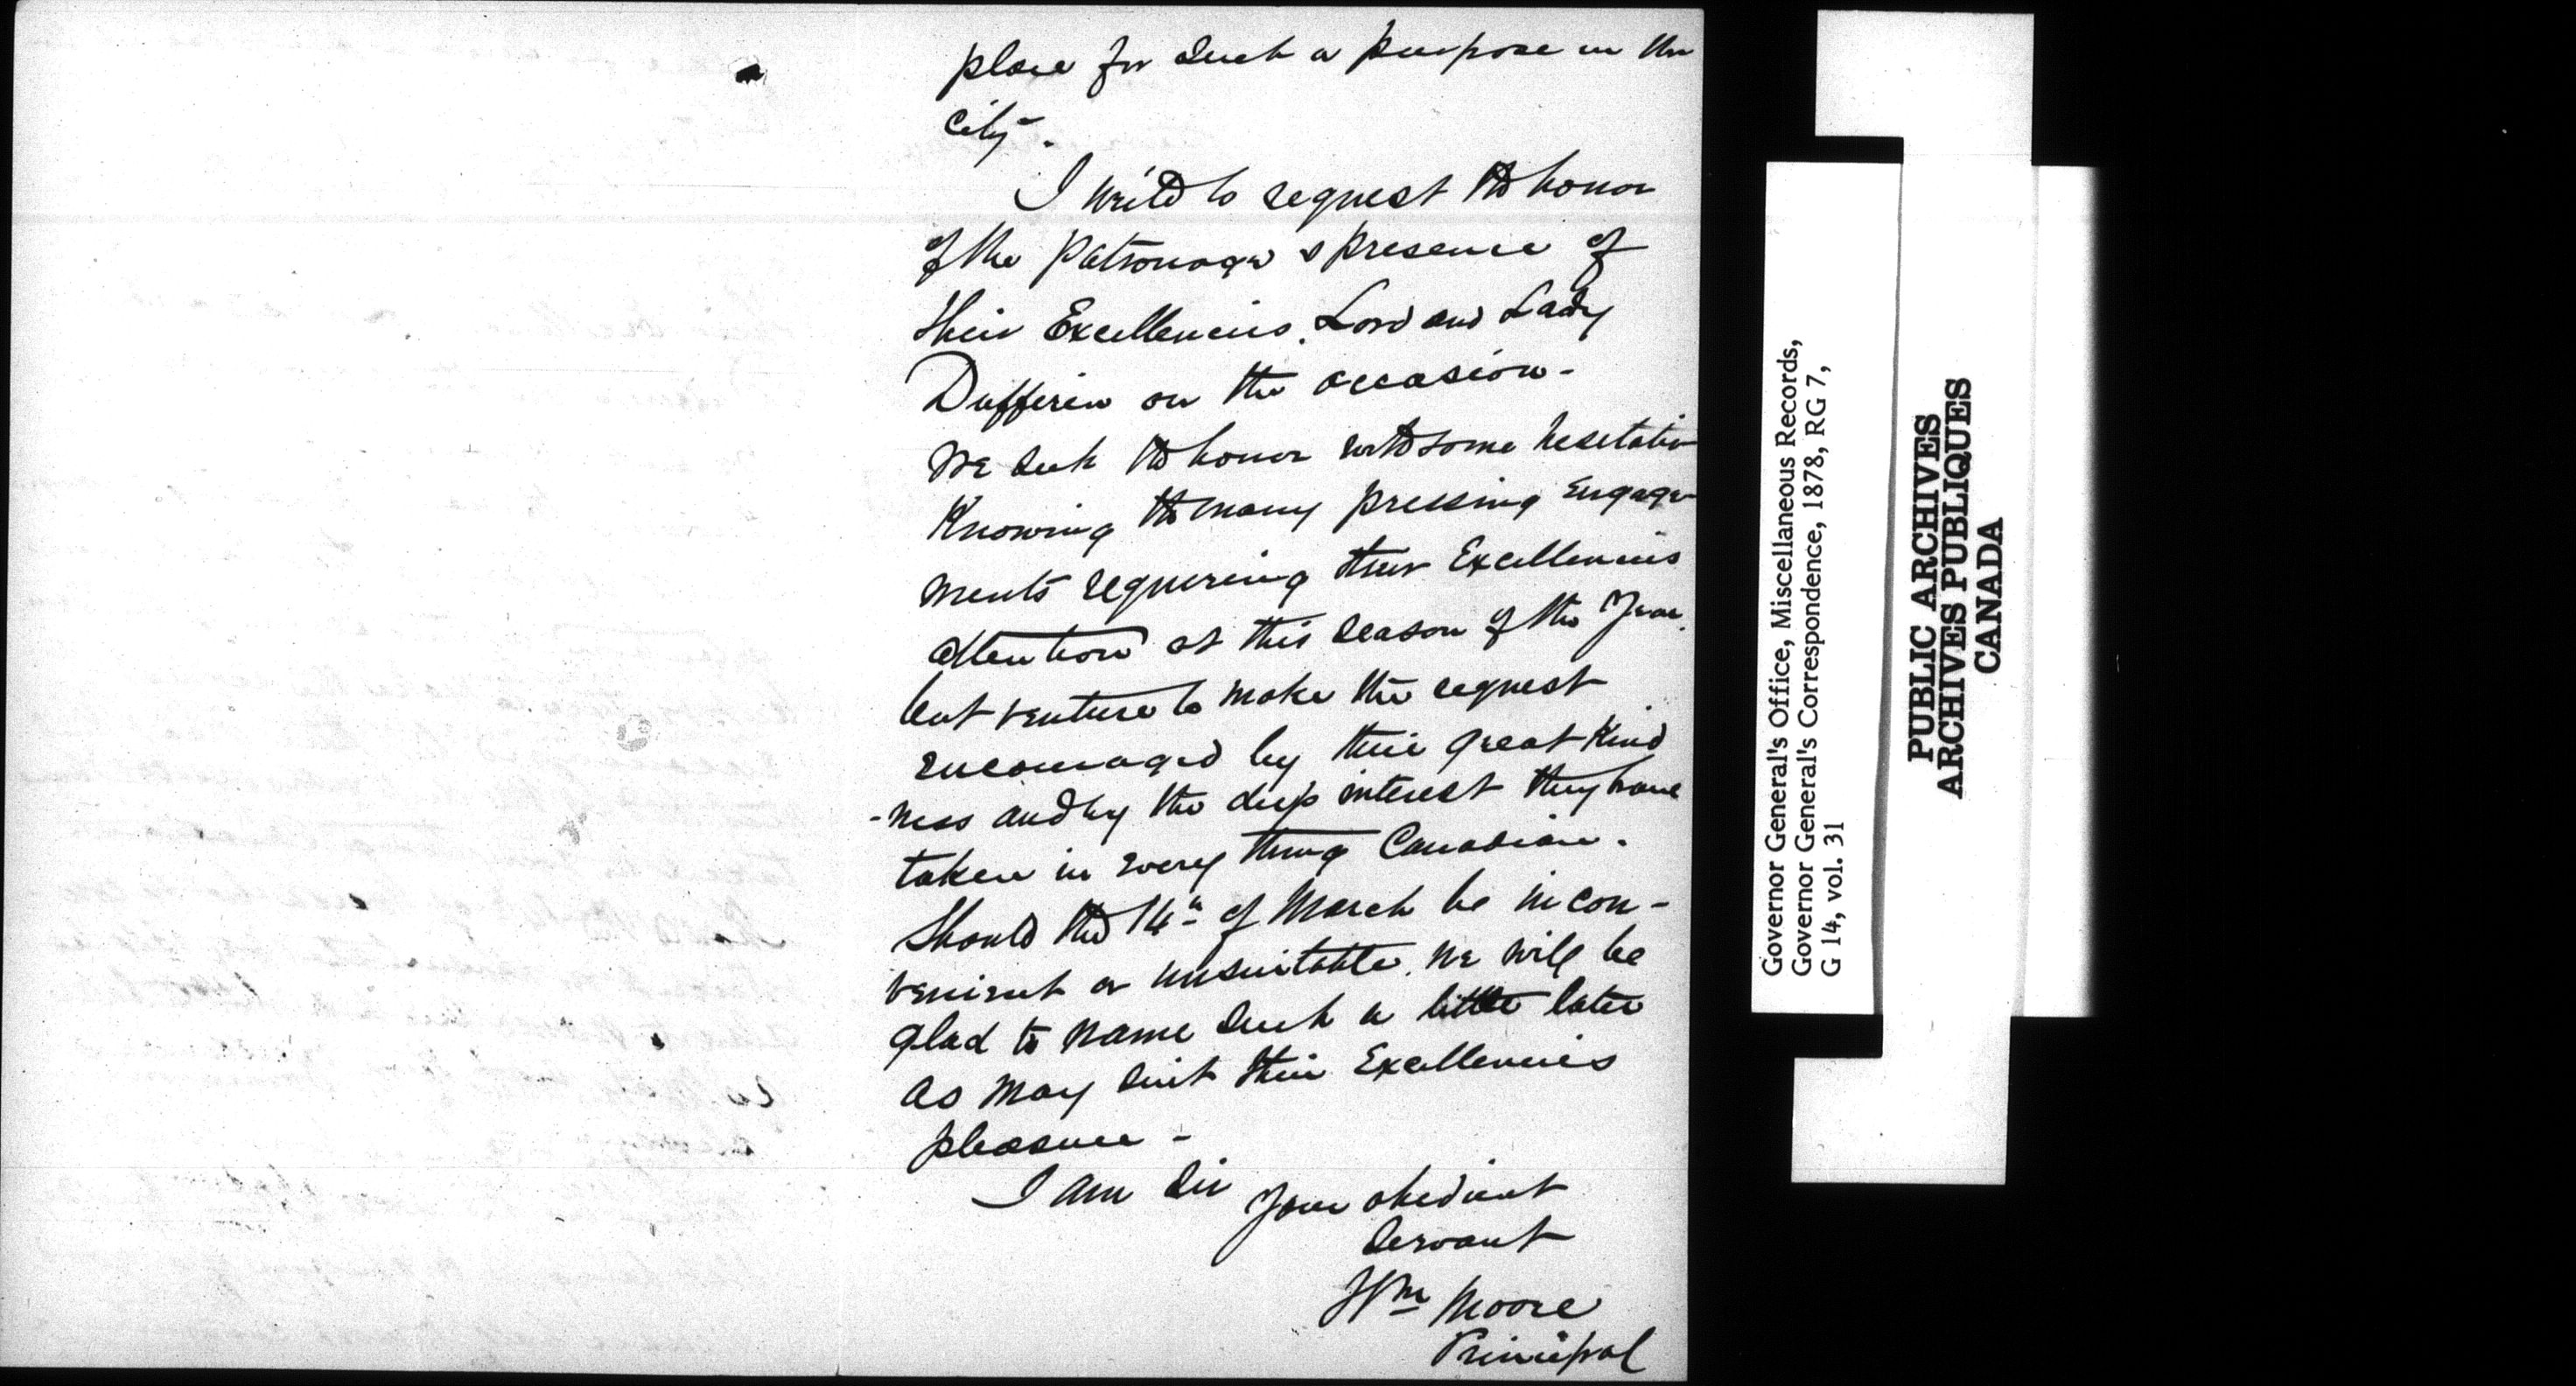 place for such a purpose in the
city.
I write to request the honor
of the patronage & presence of
their Excellencies. Lord and Lady
Dufferin on the occasion-
We seek the honor with some hesitation
Knowing the many pressing engage
ments requiring their Excellencies
attention at this season of the year.
but venture to make the request
encouraged by their great kind
-ness and by the deep interest they have
taken in every thing Canadian.
Should the 14th of March be incon-
venient or unsuitable. we will be
glad to name such a little later
as may suit their Excellencies
pleasure-
I am Sir
Your obedient
Servant
Wm Moore
Principal
Governor General's Office, Miscellaneous Records,
Governor General's Correspondence, 1878, RG 7,
G 14, vol. 31
PUBLIC ARCHIVES
ARCHIVES PUBLIQUES
CANADA